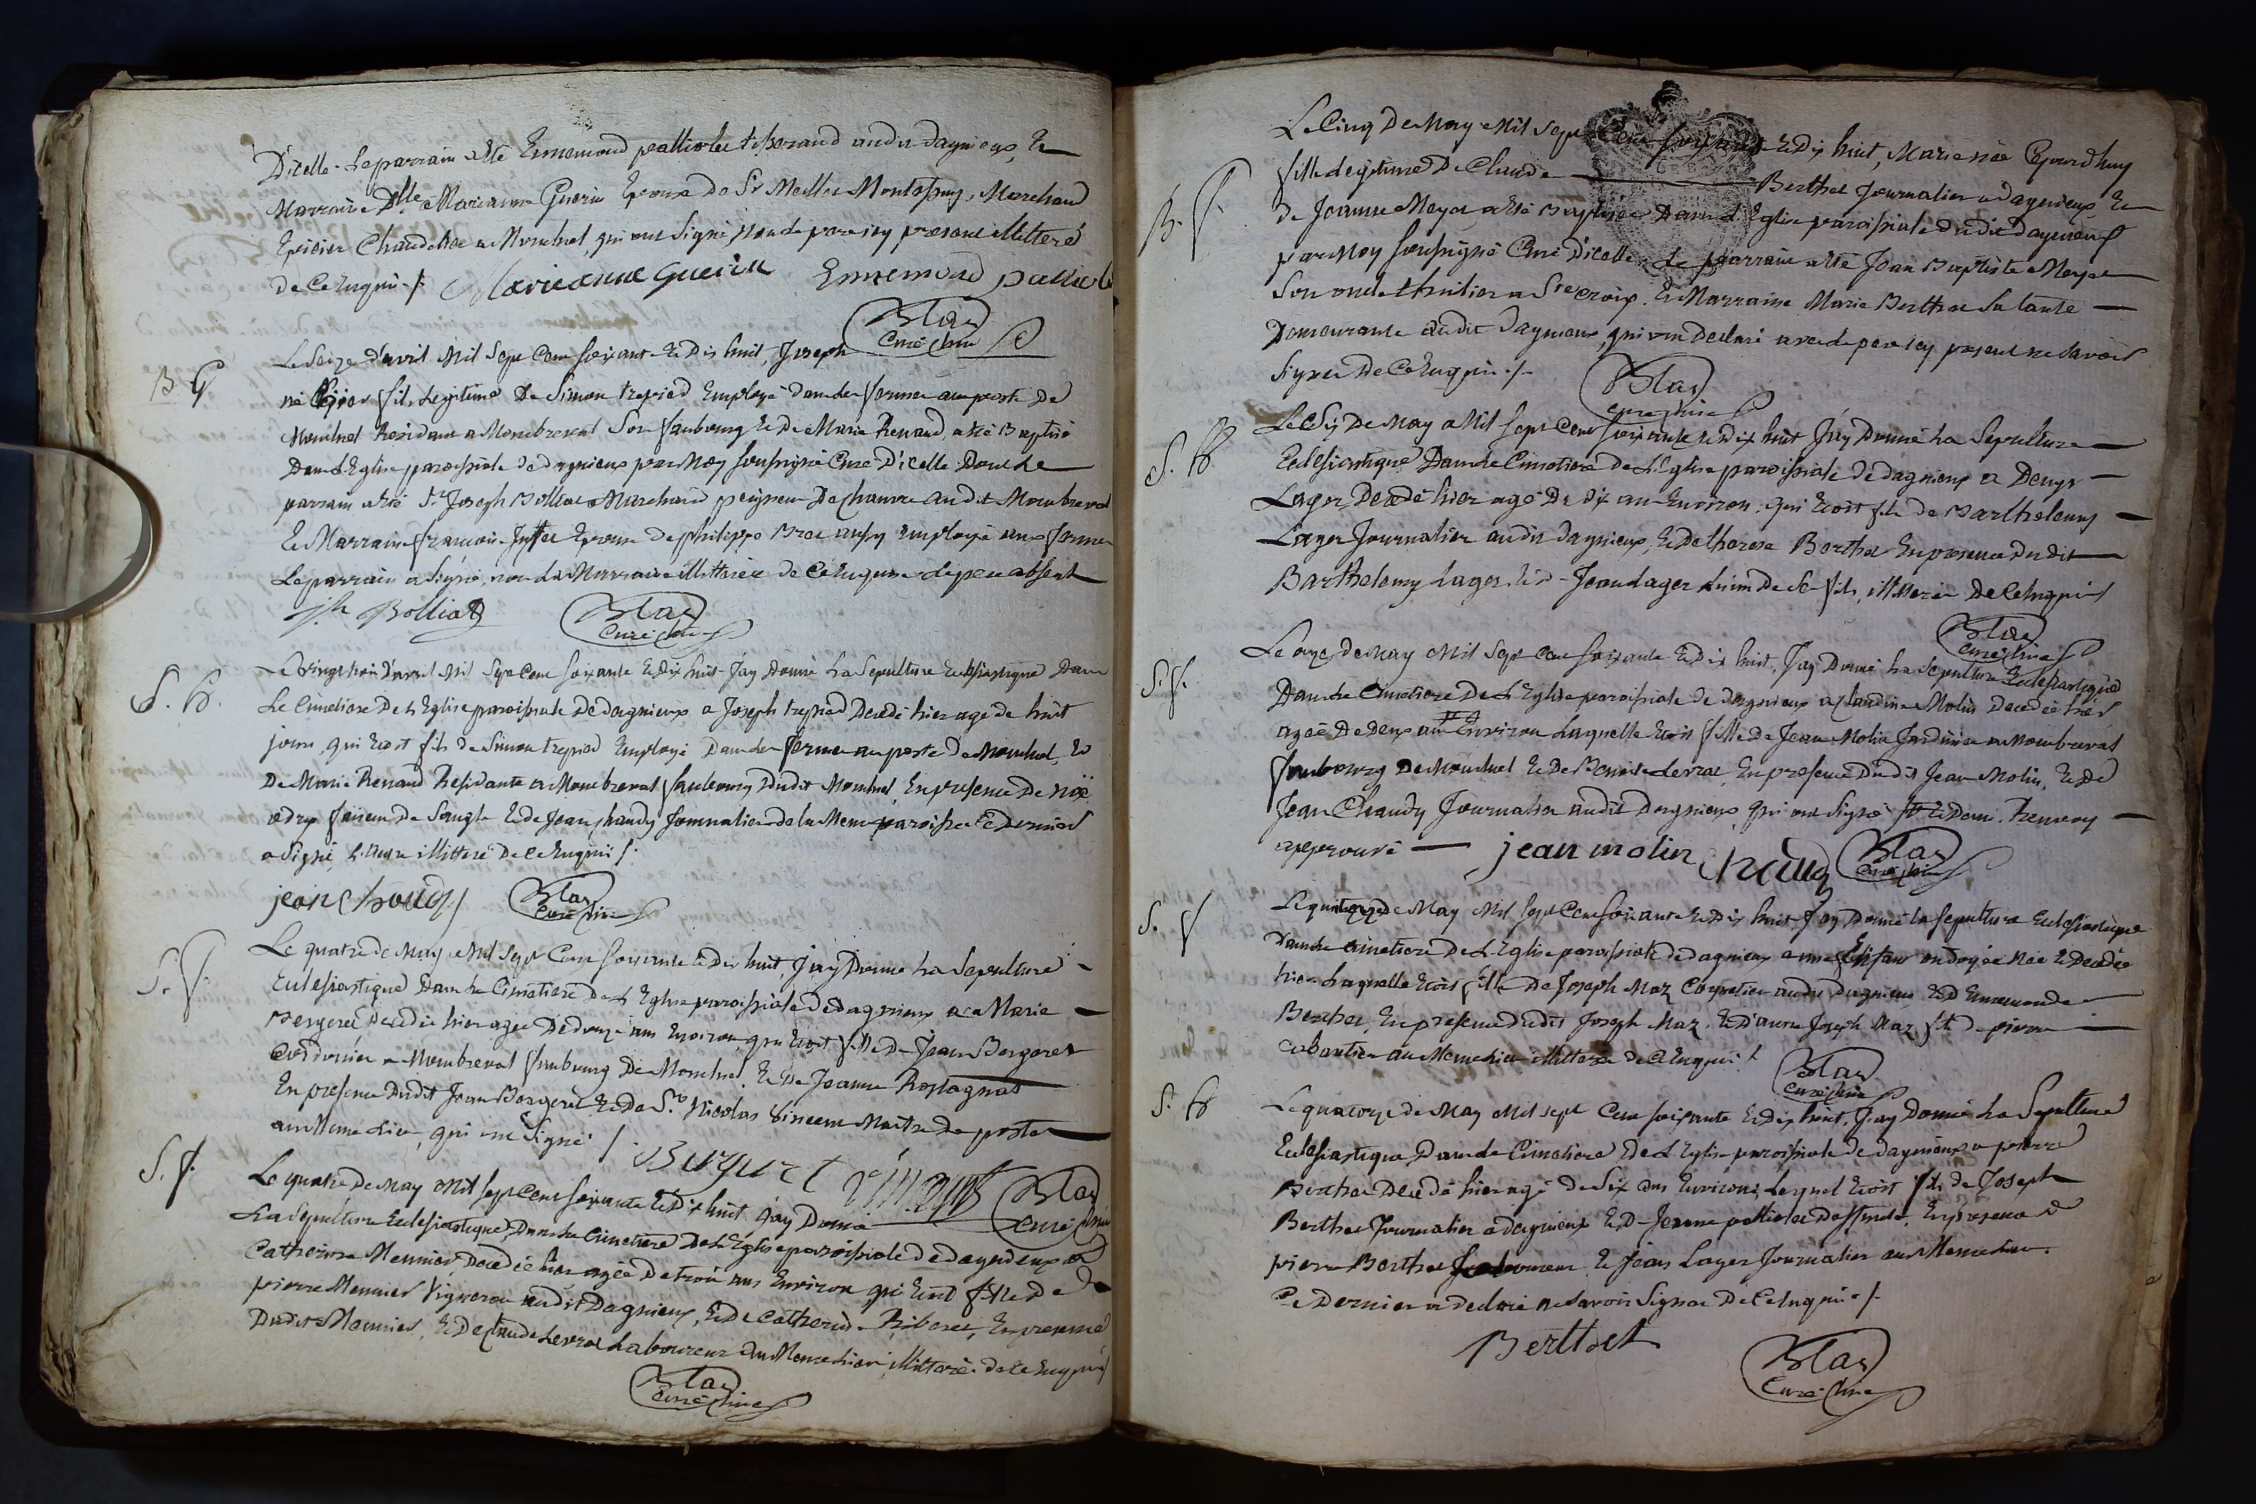 D'icelle. Le parrain a été Ennemond pallioles tisserand audit dagnieux, Et
Marraine Dlle Marieanne Guerin Epouse de Sr Montessuy, Marchand
Epicier Chandelier a Montluel, qui ont Signé, non le pere icy present illitteré
de Ce Enquis ./. Marieanne Guerin Ennemond
Blas
Curé
B G
Le Seize d'avril Mil Sept Cent Soixante Et Dix huit, Joseph
né hier fils Legitime De Simon trepied Employé dans les fermes au poste De
Montluel Residant a Montbreval Son faubourg Et De Marie Renaud, a été Baptisé
Dans L'Eglise paroissiale de dagnieux par Moy soussigné Curé D'icelle Dont Le
parrain a été Sr Joseph Bolliat Marchand peigneur De Chanvre audit Montbreval
Et Marraine francoise Epouse De philippe aussy Employé aux fermes
Le parrain a Signé, non La Marraine illitterée de Ce Enquise le pere absent
jh Bolliat
Blas
Curé
S. G.
Le vingt trois d'avril Mil Sept Cent Soixante Et Dix huit J'ay Donné La Sepulture Eclésiastique Dans
Le Cimetiere De L'Eglise paroissiale De dagnieux a Joseph trepied Decedé hier agé de huit
jours, qui Etoit fils de Simon trepied Employé Dans les fermes au poste de Montluel, Et
De Marie Renaud Residante a Montbreval faubourg Dudit Montluel, En presence De
De Jean chaudy Journalier de la Meme paroisse Ce Dernier
a Signé, L'autre illitteré De Ce Enquis ./.
jean choudy
Blas
Curé
S. f.
Le quatre de May Mil Sept Cent Soixante Et Dix huit, J'ay Donné La Sepulture
Eclesiastique Dans Le Cimetiere De L'Eglise paroissiale de dagnieux a Marie
Bergeret Decedée hier agée De douze ans Environ, qui Etoit fille De Jean Bergeret
Cordonnier a Montbreval faubourg De Montluel, Et De Jeanne Rostagnat
En presence Dudit Jean Bergeret Et De Sr Nicolas Vincent Maitre De poste
au Meme Lieu, qui ont Signé ./.
Burjuret Vincent
Blas
Curé
S. f.
Le quatre De May Mil Sept Cent Soixante Et Dix huit, j'ay Donné
La Sepulture Eclesiastique, Dans Le Cimetiere De L'Eglise paroissiale De dagnieux a
Catherine Meunier Decedée hier agée De trois ans Environ qui Etoit fille De
pierre Meunier Vigneron audit Dagnieux, Et De Catherine Riboret, En presence
Dudit Meunier, Et De Claude Levrat Laboureur au Meme Lieu, illitteré De Ce Enquis
Blas
Curé
B. f.
Le Cinq De May Mil Sept Cent Soixante Et Dix huit, Marie née Cejourdhuy
fille Legitime De Claude Berthet Journalier a dagnieux Et
de Jeanne Moyat a été Baptisée Dans L'Eglise paroissiale Dudit Dagnieux
par Moy Soussigné Curé D'icelle, Le parrain a été Jean Baptiste Moyat
Son oncle a Ste Croix. Et Marraine Marie Berthet Sa tante
Demeurante audit Dagnieux, qui ont Declaré avec le pere icy present ne Savoir
Signer De Ce Enquis ./.
Blas
Curé
S. G.
Le Six De May Mil Sept Cent Soixante Et Dix huit J'ay Donné La Sepulture
Eclesiastique Dans Le Cimetiere De L'Eglise paroissiale De dagnieux a Denys
Lager Decedé hier agé De Dix ans Environ, qui Etoit fils De Barthelemy
Lager Journalier audit Dagnieux, Et De therese Berthet En presence dudit
Barthelemy Lager, Et De Jean Lager L'un De Ses fils, illitterés De Ce Enquis
Blas
Curé
S. f.
Le onze De May Mil Sept Cent Soixante Et Dix huit, J'ay Donné La Sepulture Eclésiastique
Dans Le Cimetiere De L'Eglise paroissiale De dagnieux a Claudine Molin Decedée hier
agée De Deux ans Environ Laquelle Etoit fille De Jean Molin Jardinier a Montbreval
faubourg De Montluel Et De Benoite Levrat, En presence Dudit Jean Molin, Et De
Jean Chaudy Journalier audit Dagnieux qui ont Signé
approuvé jean molin chaudy
Blas
Curé
S. f
Le quatorze De May Mil Sept Cent Soixante Et Dix huit J'ay Donné La Sepulture Eclésiastique
Dans Le Cimetiere De L'Eglise paroissiale De dagnieux a une Enfant ondoyée née Et Decedée
hier Laquelle Etoit fille De Joseph Maz audit Dagnieux Et D'Ennemonde
Berthet, En presence dudit Joseph Maz, Et D'autre Joseph Maz fils De pierre
Cabaretier au Meme Lieu illitterés de Ce Enquis ./.
Blas
Curé
S. G
Le quatorze De May Mil Sept Cent Soixante Et Dix huit, J'ay Donné La Sepulture
Eclesiastique, Dans Le Cimetiere De L'Eglise paroissiale De dagnieux a pierre
Berthet Decedé hier agé De Six ans Environs, Lequel Etoit fils de Joseph
Berthet Journalier a dagnieux Et De Jeanne palliolet Deffunte, En presence De
pierre Berthet Laboureur, Et Jean Lager Journalier au Meme Lieu.
Ce Dernier a declaré ne Savoir Signer De Ce Enquis ./.
Berthet
Blas
Curé